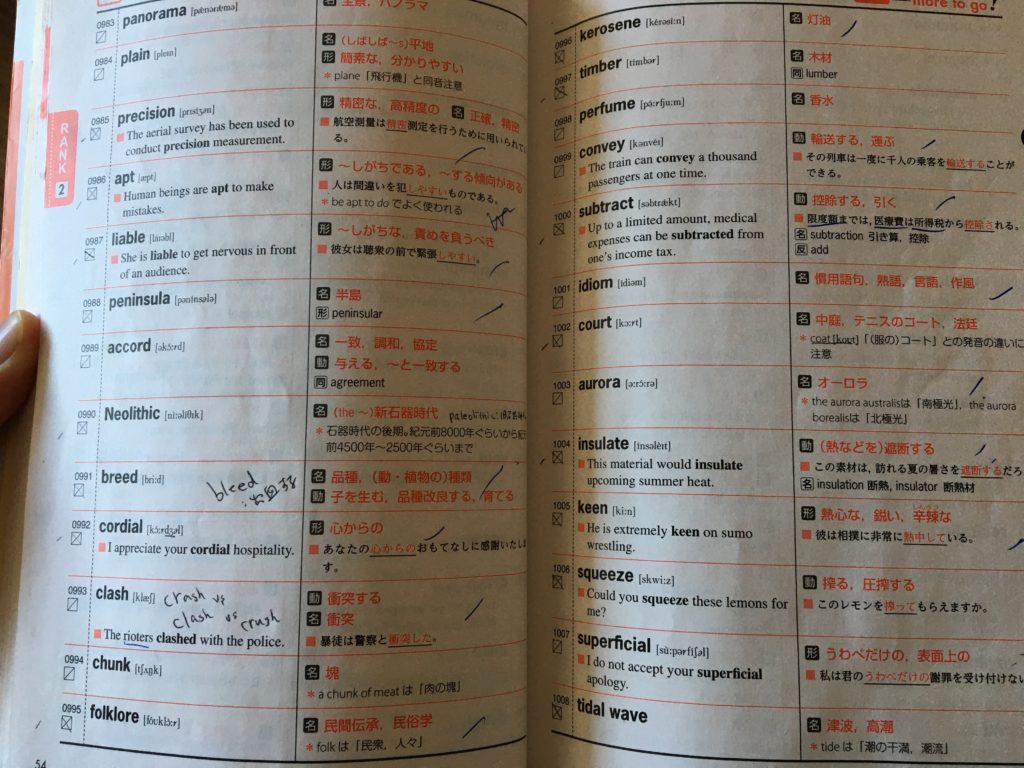 RANK
2
0983 panorama [pænərǽmə]
名 全景，パノラマ
0984 plain [plein]
名 (しばしば~s)平地
形 簡素な，分かりやすい
* plane「飛行機」と同音注意
0985 precision [prɪsɪ́ʒən]
The aerial survey has been used to
conduct precision measurement.
形 精密な，高精度の 名 正確，精密
航空測量は精密測定を行うために用いられて
る。
0986 apt [æpt]
Human beings are apt to make
mistakes.
形 ～しがちである，～する傾向がある
人は間違いを犯しやすいものである。
* be apt to do でよく使われる
0987 liable [láɪəbl]
She is liable to get nervous in front
of an audience.
形 ～しがちな，責めを負うべき
彼女は聴衆の前で緊張しやすい。
0988 peninsula [pənínsələ]
名 半島
形 peninsular
0989 accord [əkɔ́ːrd]
名 一致，調和，協定
動 与える，～と一致する
同 agreement
0990 Neolithic [nìːəlíθɪk]
名 (the ~)新石器時代 paleolithic:旧石器時代
* 石器時代の後期。紀元前8000年ぐらいから紀元
前4500年～2500年ぐらいまで
0991 breed [briːd]
bleed
名 品種，(動・植物の)種類
動 子を生む，品種改良する，育てる
0992 cordial [kɔ́ːrdʒəl]
I appreciate your cordial hospitality.
形 心からの
あなたの心からのおもてなしに感謝いたしま
す。
0993 clash [klæʃ] crash vs
clash vs crush
The rioters clashed with the police.
動 衝突する
名 衝突
暴徒は警察と衝突した。
0994 chunk [tʃʌŋk]
名 塊
* a chunk of meat は「肉の塊」
0995 folklore [fóuklɔ̀ːr]
名 民間伝承，民俗学
* folk は「民衆，人々」
54
more to go!
0996 kerosene [kérəsìːn]
名 灯油
0997 timber [tímbər]
名 木材
同 lumber
0998 perfume [pə́ːrfjuːm]
名 香水
0999 convey [kənvéɪ]
The train can convey a thousand
passengers at one time.
動 輸送する，運ぶ
その列車は一度に千人の乗客を輸送することが
できる。
1000 subtract [səbtrǽkt]
Up to a limited amount, medical
expenses can be subtracted from
one's income tax.
動 控除する，引く
限度額までは，医療費は所得税から控除される。
名 subtraction 引き算，控除
反 add
1001 idiom [ídiəm]
名 慣用語句，熟語，言語，作風
1002 court [kɔːrt]
名 中庭，テニスのコート，法廷
* coat [kout]「(服の)コート」との発音の違いに
注意
1003 aurora [ərɔ́ːrə]
名 オーロラ
* the aurora australisは「南極光」，the aurora
borealisは「北極光」
1004 insulate [ínsəlèɪt]
This material would insulate
upcoming summer heat.
動 (熱などを)遮断する
この素材は，訪れる夏の暑さを遮断するだろ
名 insulation 断熱，insulator 断熱材
1005 keen [kiːn]
He is extremely keen on sumo
wrestling.
形 熱心な，鋭い，辛辣な
彼は相撲に非常に熱中している。
1006 squeeze [skwiːz]
Could you squeeze these lemons for
me?
動 搾る，圧搾する
このレモンを搾ってもらえますか。
1007 superficial [sùːpərfíʃəl]
I do not accept your superficial
apology.
形 うわべだけの，表面上の
私は君のうわべだけの謝罪を受け付けない
1008 tidal wave
名 津波，高潮
* tide は「潮の干満，潮流」